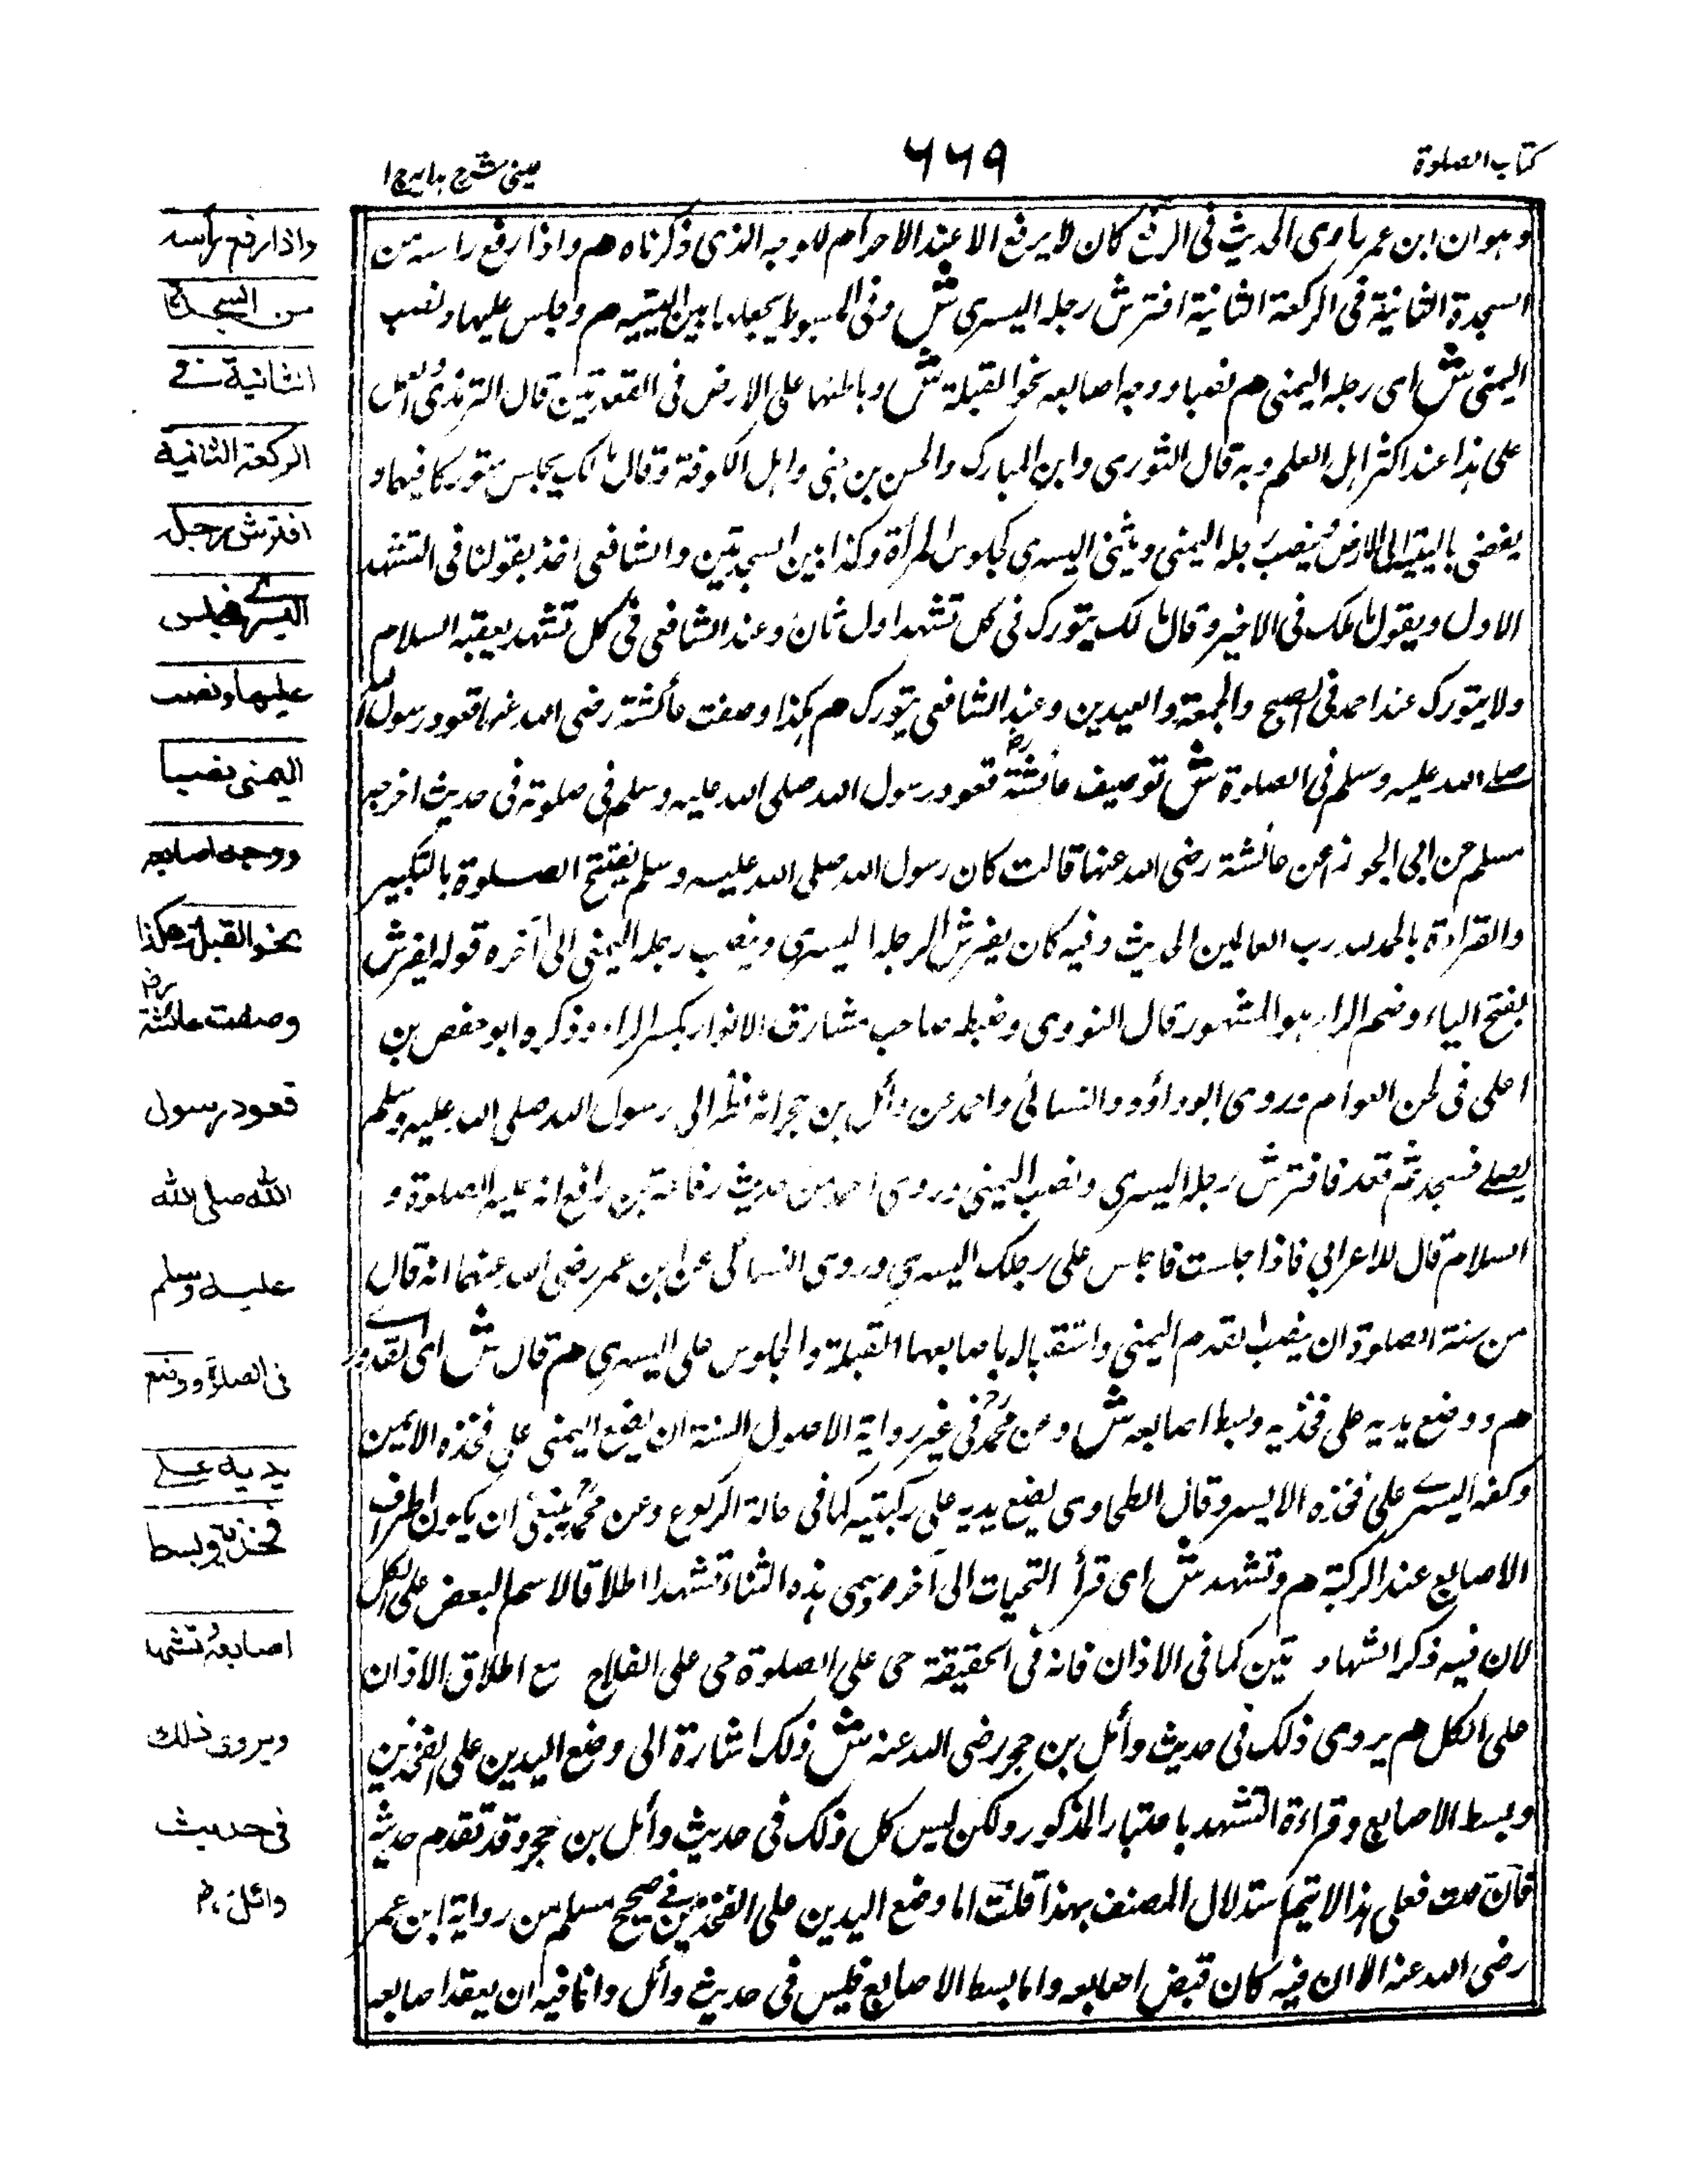 كتاب الصلوة
٦٦٩
عينى شرح هدايه ج ١
وهو ان ابن عمر راوى الحديث فى الرفع كان لا يرفع الا عند الاحرام للوجه الذى ذكرناه هم واذا رفع راسه من
السجدة الثانية فى الركعة الثانية افترش رجله اليسرى ش وفى المبسوط يجعلها بين اليتيه هم وجلس عليها ونصب
اليمنى ش اى رجله اليمنى هم نصبا ووجه اصابعه نحو القبلة ش وباطنها على الارض فى القعدتين قال الترمذى العمل
على هذا عند اكثر اهل العلم وبه قال الثورى وابن المبارك والحسن بن حى واهل الكوفة وقال مالك يجلس متوركا فيهما و
يفضى باليتيه الى الارض وينصب رجله اليمنى ويثنى اليسرى كجلوس المرأة وكذا بين السجدتين والشافعى اخذ بقولنا فى التشهد
الاول وبقول مالك فى الاخير وقال مالك يتورك فى كل تشهد اول ثان وعند الشافعى فى كل تشهد يعقبه السلام
ولا يتورك عند احمد فى الصبح والجمعة والعيدين وعند الشافعى يتورك هم هكذا وصفت عائشة رضى الله عنها قعود رسول الله
صلى الله عليه وسلم فى الصلوة ش توصيف عائشة رض قعود رسول الله صلى الله عليه وسلم فى صلوته فى حديث اخرجه
مسلم عن ابى الجوزاء عن عائشة رضى الله عنها قالت كان رسول الله صلى الله عليه وسلم يفتتح الصلوة بالتكبير
والقراءة بالحمد لله رب العالمين الحديث وفيه كان يفرش الرجله اليسرى وينصب رجله اليمنى الى آخره قوله يفرش
بفتح الياء وضم الراء هو المشهور قال النووى وضبطه صاحب مشارق الانوار بكسر الراء وذكره ابو حفص بن
اعلى فى لحن العوام وروى ابو داؤد والنسائى واحمد عن وائل بن حجر انه نظر الى رسول الله صلى الله عليه وسلم
يصلى فسجد ثم قعد فافترش رجله اليسرى ونصب اليمنى وروى احمد من حديث رفاعة بن رافع انه عليه الصلوة و
السلام قال للاعرابى فاذا جلست فاجلس على رجلك اليسرى وروى النسائى عن ابن عمر رضى الله عنهما انه قال
من سنة الصلوة ان ينصب القدم اليمنى واستقباله باصابعها القبلة والجلوس على اليسرى هم قال ش اى القدورى
هم ووضع يديه على فخذيه وبسط اصابعه ش وعن محمد فى غير رواية الاصول السنة ان يضع اليمنى على فخذه الايمن
وكفه اليسرى على فخذه الايسر وقال الطحاوى يضع يديه على ركبتيه كما فى حالة الركوع وعن محمد ينبغى ان يكون اطراف
الاصابع عند الركبة هم وتشهد ش اى قرأ التحيات الى آخره وسمى هذه الثناء تشهدا اطلاقا لاسم البعض على الكل
لان فيه ذكر الشهادتين كما فى الاذان فانه فى الحقيقة حى على الصلوة حى على الفلاح مع اطلاق الاذان
على الكل هم يروى ذلك فى حديث وائل بن حجر رضى الله عنه ش ذلك اشارة الى وضع اليدين على الفخذين
وبسط الاصابع وقراءة التشهد باعتبار المذكور ولكن ليس كل ذلك فى حديث وائل بن حجر وقد تقدم حديثه
فان قلت فعلى هذا لا يتم استدلال المصنف بهذا قلت اما وضع اليدين على الفخذين ففى صحيح مسلم من رواية ابن عمر
رضى الله عنه الا ان فيه كان قبض اصابعه واما بسط الاصابع فليس فى حديث وائل وانما فيه ان يعقد اصابعه
واذا رفع رأسه
من السجدة
الثانية فى
الركعة الثانية
افترش رجله
اليسرى فجلس
عليها ونصب
اليمنى نصبا
ووجه اصابعه
نحو القبلة هكذا
وصفت عائشة رض
قعود رسول
الله صلى الله
عليه وسلم
فى الصلوة ووضع
يديه على
فخذيه وبسط
اصابعه وتشهد
ويروى ذلك
فى حديث
وائل رض